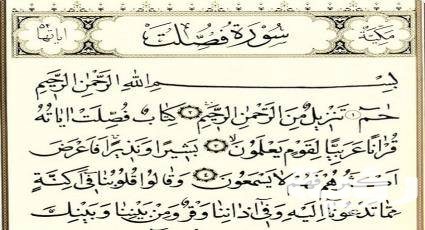 مكية سورة فصلت اياتها
بسم الله الرحمن الرحيم
حٰمٓ ﴿١﴾ تَنْزِيلٌ مِنَ الرَّحْمٰنِ الرَّحِيمِ ﴿٢﴾ كِتَابٌ فُصِّلَتْ اٰيَاتُهُ
قُرْاٰنًا عَرَبِيًّا لِقَوْمٍ يَعْلَمُونَ ﴿٣﴾ بَشِيرًا وَنَذِيرًا فَاَعْرَضَ
اَكْثَرُهُمْ فَهُمْ لَا يَسْمَعُونَ ﴿٤﴾ وَقَالُوا قُلُوبُنَا فِٓى اَكِنَّةٍ
مِمَّا تَدْعُونَٓا اِلَيْهِ وَفِٓى اٰذَانِنَا وَقْرٌ وَمِنْ بَيْنِنَا وَبَيْنِكَ